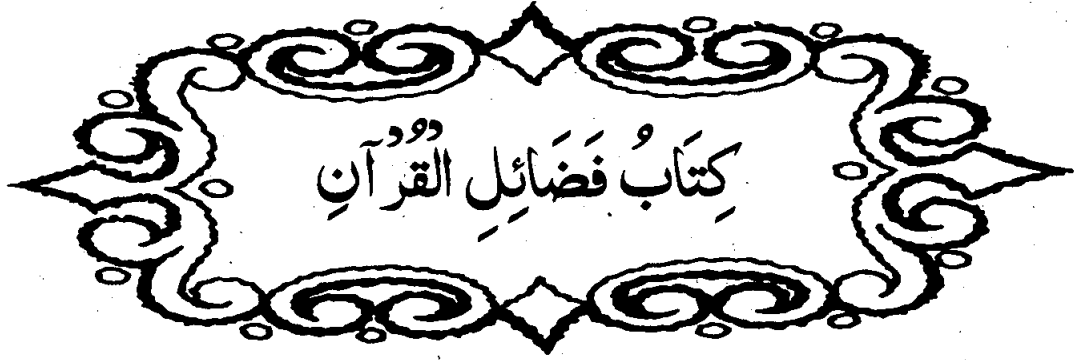 كِتَابُ فَضَائِلِ الْقُرْآنِ